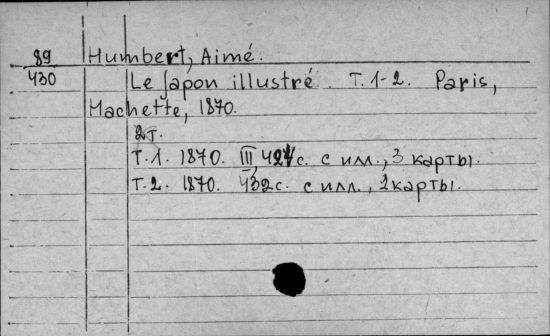 89 Humbert, Aimé.
430 Le Japon illustré. T. 1-2. Paris,
Hachette, 1870.
2т.
Т. 1. 1870. III, 427с. с илл., 3 карты.
Т. 2. 1870. 432с. с илл., 2 карты.